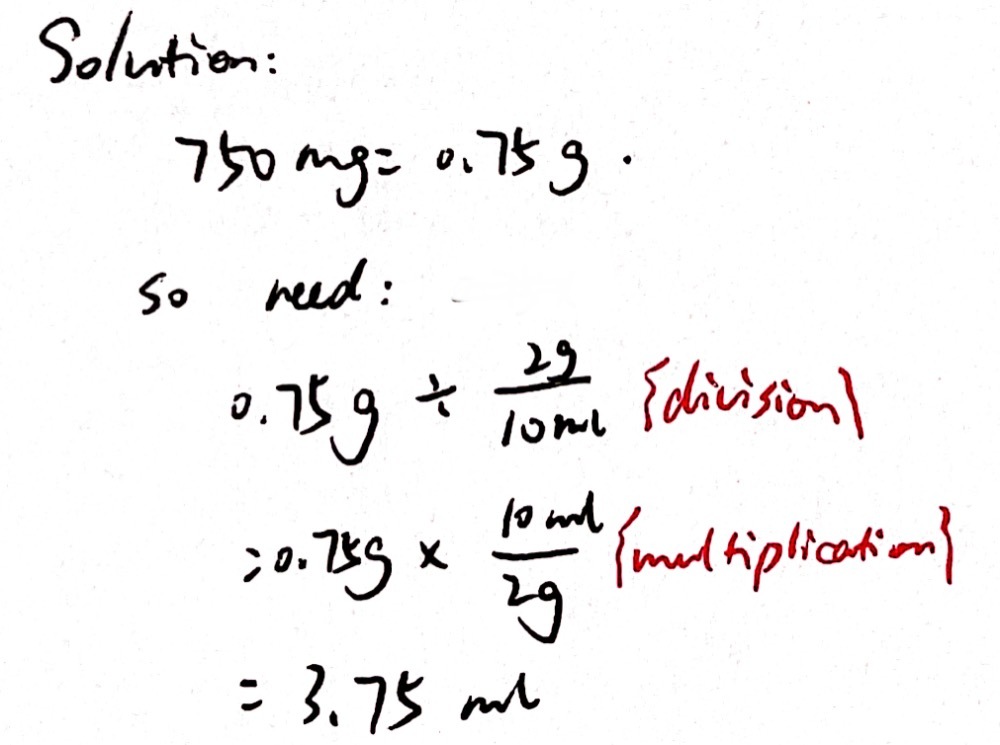 Solution:
750 mg = 0.75 g .
so need:
0.75 g ÷ 2g / 10 ml {division}
= 0.75g × 10 ml / 2g {multiplication}
= 3.75 ml